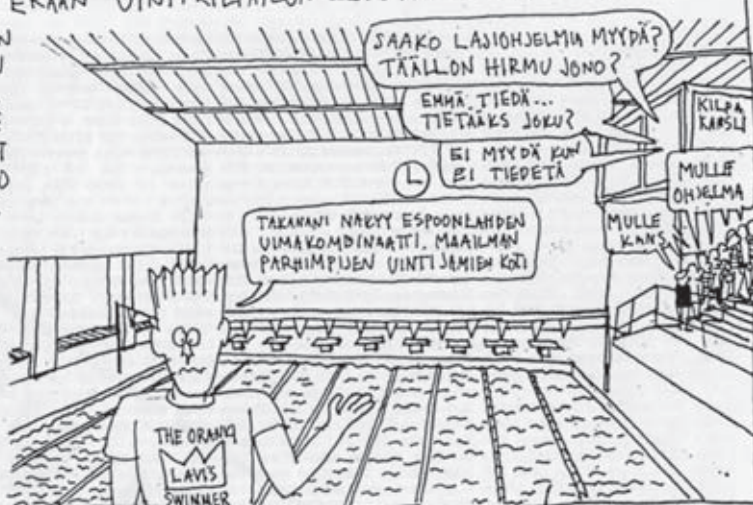 ERÄÄN UINTIKILPAILUN
SAAKO LAJIOHJELMIA MYYDÄ?
TÄÄLLON HIRMU JONO?
EMMÄ TIEDÄ...
TIETÄÄKS JOKU?
EI MYYDÄ KUN
EI TIEDETÄ
KILPA
KANSLI
MULLE
OHJELMA
MULLE
KANS
TAKANANI NÄKYY ESPOONLAHDEN
UIMAKOMBINAATTI, MAAILMAN
PARHIMPIJEN UINTIJAMIEH KOTI
THE ORANQ
LAVIS
SWIMMER